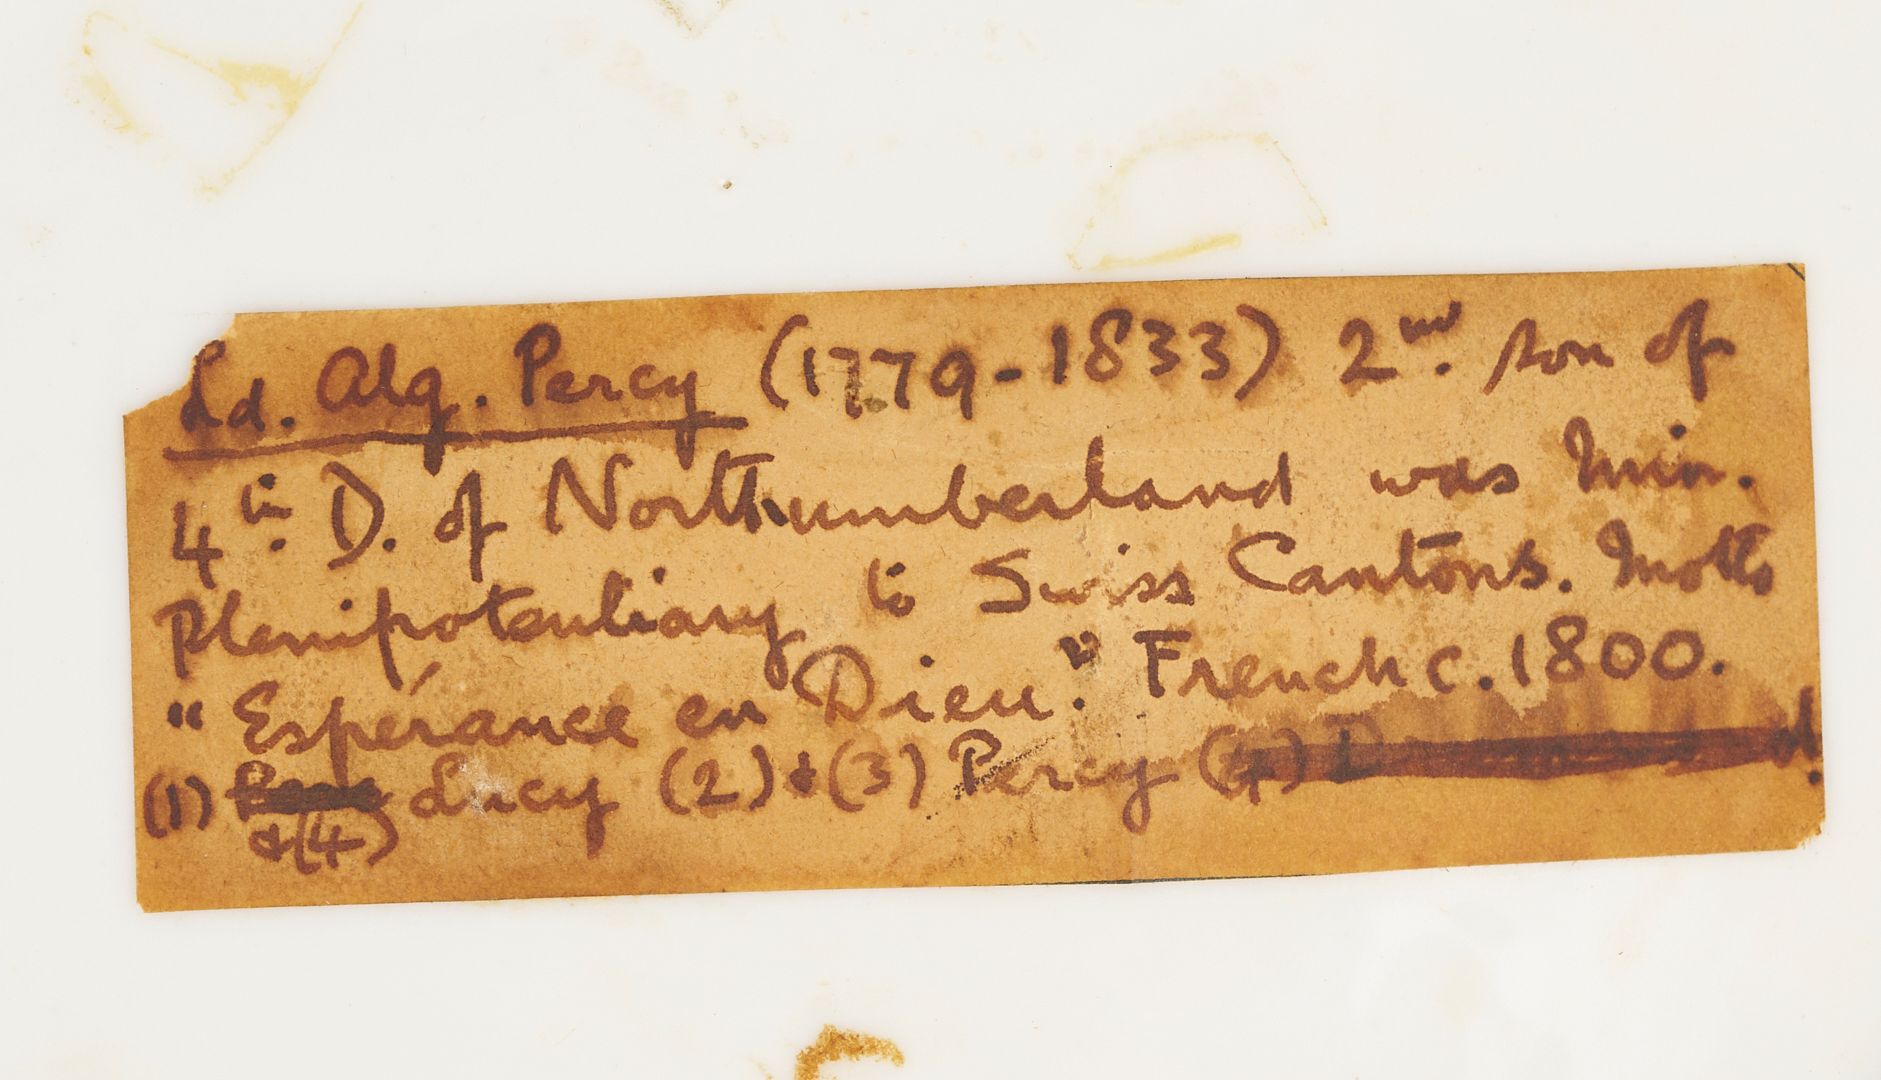 Ld. Alg. Percy (1779-1833) 2nd. son of
4th. D. of Northumberland was Min.
Plenipotentiary to Swiss Cantons. Motto
"Espérance en Dieu." French c. 1800.
(1) Lucy (2) & (3) Percy (4)
& (4)